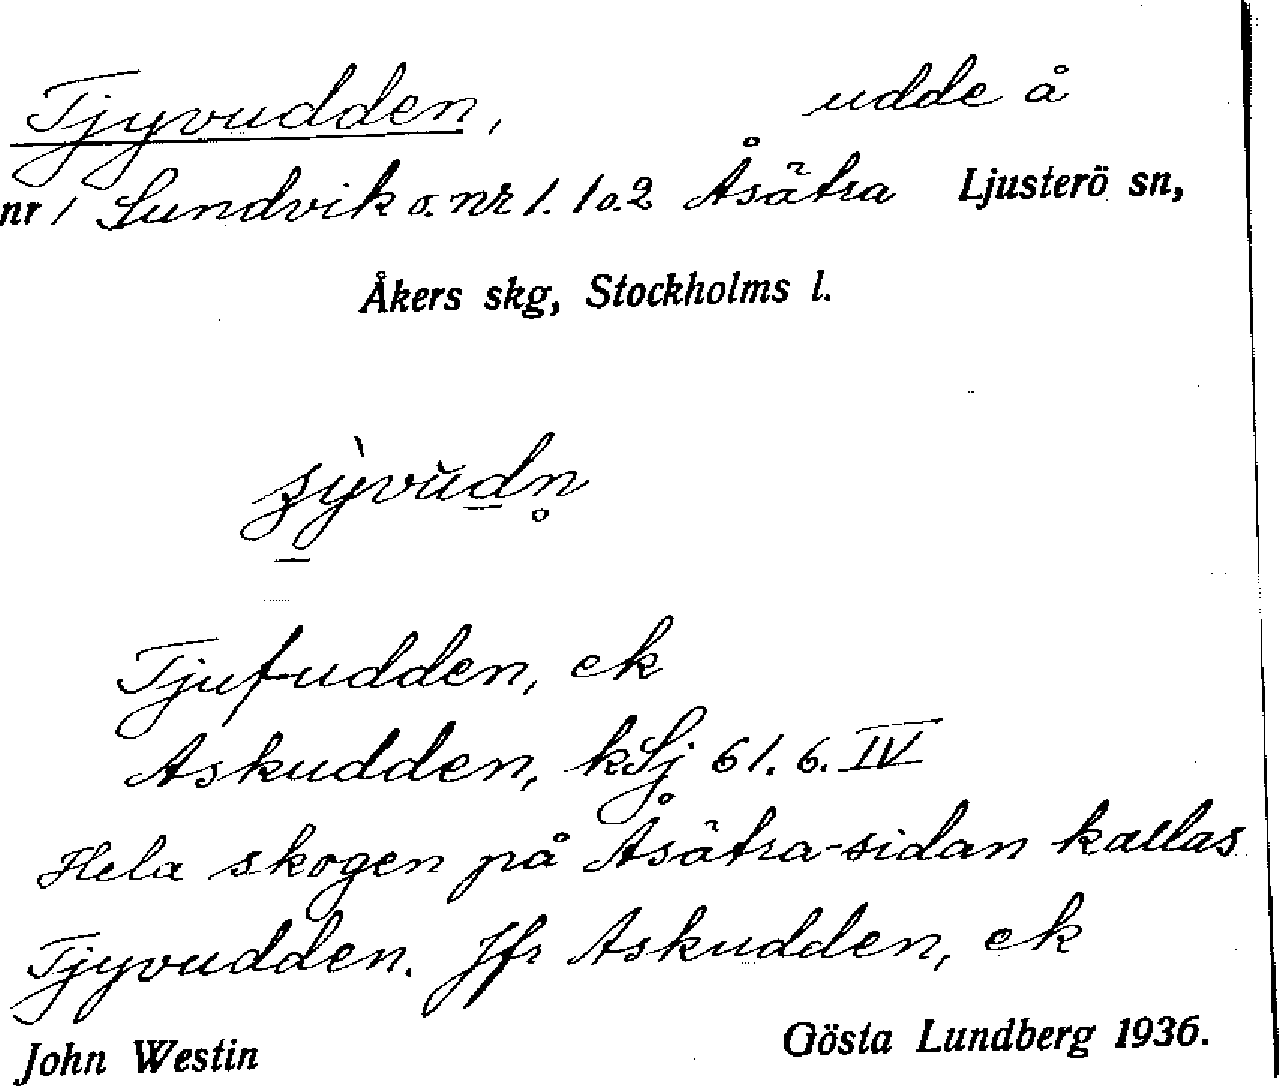 Tjyvudden, udde å
nr 1 Sundvik o. nr 1. 1 o. 2 Åsätra Ljusterö sn,
Åkers skg, Stockholms l.
Tjufudden, ek
Askudden, kSj 61. 6. IV
Hela skogen på Åsätra-sidan kallas
Tjyvudden. Jfr Askudden, ek
John Westin Gösta Lundberg 1936.